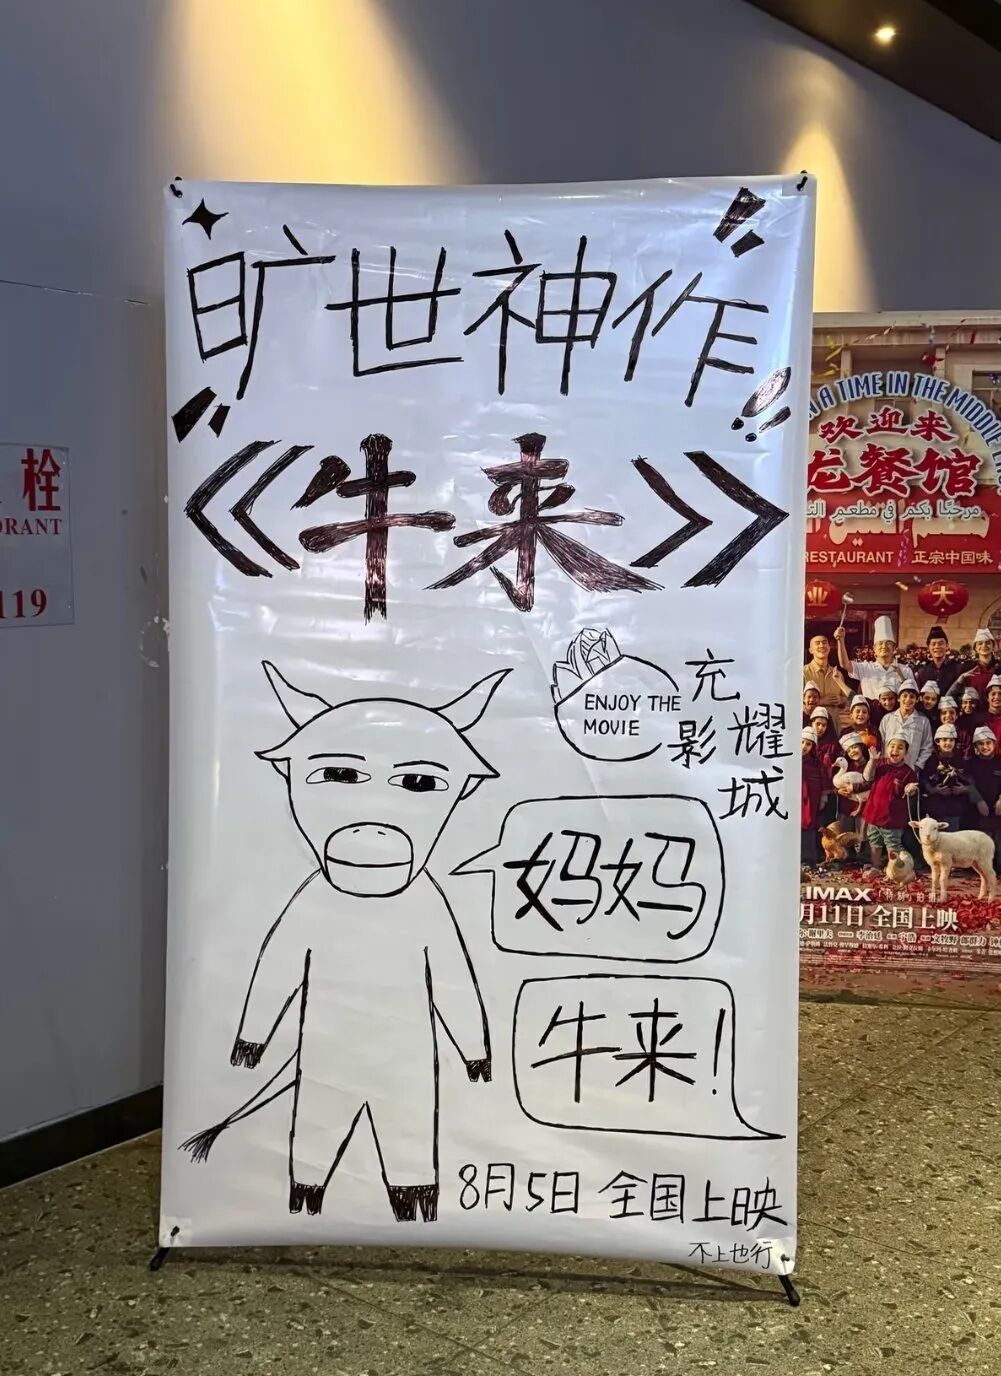 旷世神作
《牛来》
ENJOY THE
MOVIE
充耀
影城
妈妈
牛来!
8月5日 全国上映
不上也行
栓
DRANT
119
N A TIME IN THE MIDDLE
欢迎来
龙餐馆
مرحبًا بكم في مطعم
RESTAURANT 正宗中国味
业
大
IMAX
月11日 全国上映